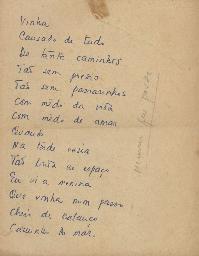 Vinha
Cansado de tudo
De tanto caminhos
Tão sem presio
Tão sem passarinhos
Com medo da vida
Com medo de amar
Quando
Na tarde vazia
Tão linda no espaço
Eu vi a menina
Que vinha num passo
Cheio de balanço
Caminho do mar.
menina que passa